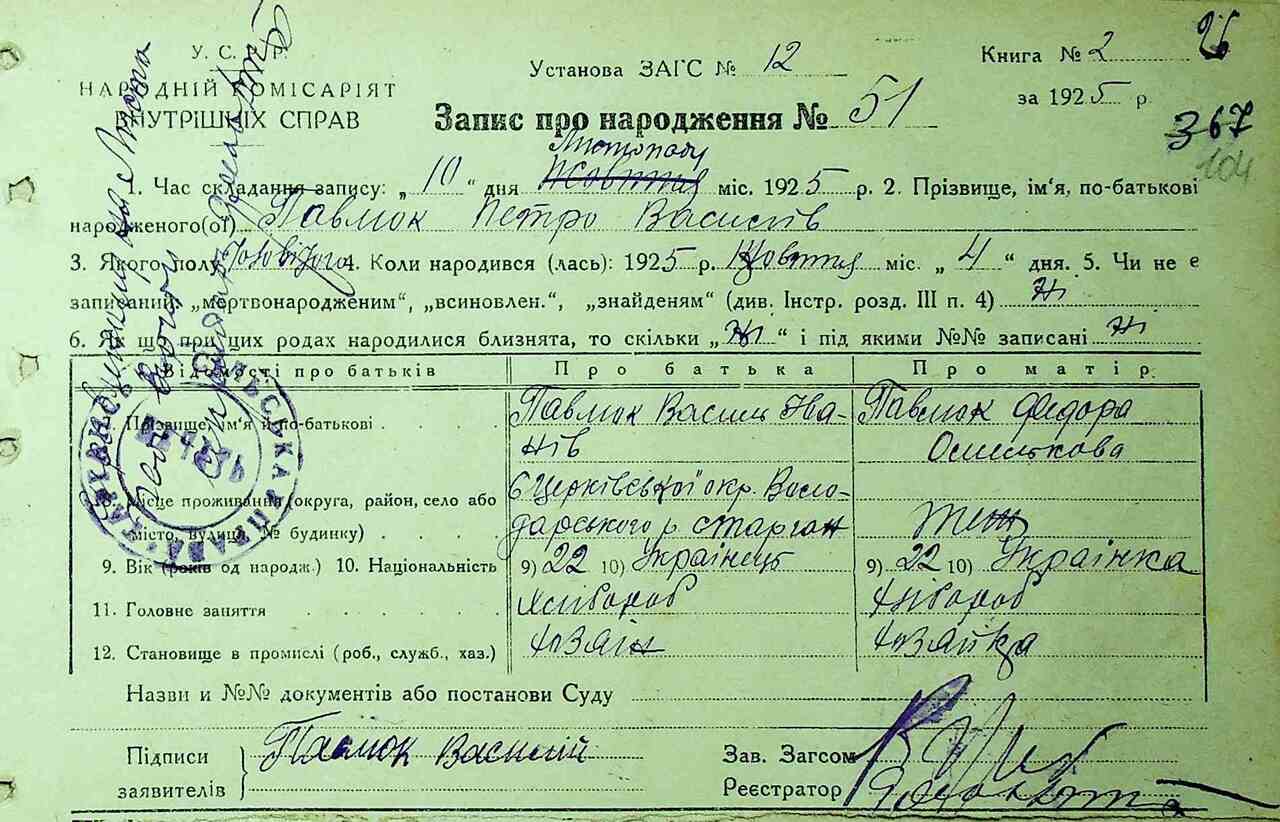 У. С. Р. Р.
НАРОДНІЙ КОМІСАРІЯТ
ВНУТРІШНІХ СПРАВ
Установа ЗАГС № 12
Книга № 2
за 1925 р.
26
367
104
Запис про народження № 51
Листопаду
1. Час складання запису: „ 10 “ дня Жовтня міс. 1925 р. 2. Прізвище, ім'я, по-батькові
народженого(ої) Павлюк Петро Василів
3. Якого полу Чоловічого 4. Коли народився (лась): 1925 р. Жовтня міс. „ 4 “ дня. 5. Чи не є
записаний „мертвонародженим“, „всиновлен.“, „знайденям“ (див. Інстр. розд. III п. 4) Ні
6. Як що при цих родах народилися близнята, то скільки „ Ні “ і під якими №№ записані Ні
Відомості про батьків Про батька Про матір
Прізвище, ім'я й по-батькові Павлюк Василь Іва- Павлюк Федора
нів
8. Місце проживання (округа, район, село або Б Церківської окр. Воло-
місто, вулиця, № будинку) дарського р. теж
9. Вік (років од народж.) 10. Національність 9) 22 10) Українець 9) 22 10) Українка
11. Головне заняття Хлібороб Хлібороб
12. Становище в промислі (роб., служб., хаз.) Хазяїн Хазяйка
Назви и №№ документів або постанови Суду
Підписи
заявителів
Павлюк Василій
Зав. Загсом
Реєстратор
СІЛЬСЬКА РАДА